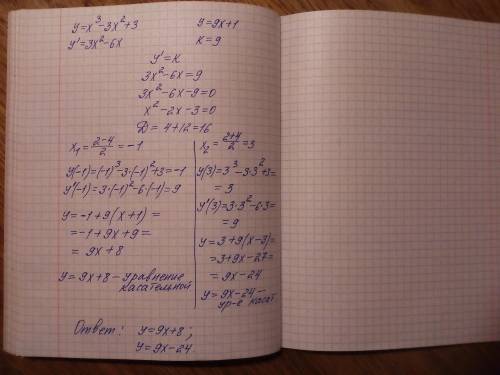 y=x³-3x²+3
y=9x+1
y'=3x²-6x
k=9
y'=k
3x²-6x=9
3x²-6x-9=0
x²-2x-3=0
D=4+12=16
x₁=(2-4)/2=-1
y(-1)=(-1)³-3·(-1)²+3=-1
y'(-1)=3·(-1)²-6·(-1)=9
y=-1+9(x+1)=
=-1+9x+9=
=9x+8
y=9x+8-уравнение
касательной
x₂=(2+4)/2=3
y(3)=3³-3·3²+3=
=3
y'(3)=3·3²-6·3=
=9
y=3+9(x-3)=
=3+9x-27=
=9x-24
y=9x-24-
ур-е касат.
Ответ: y=9x+8;
y=9x-24.